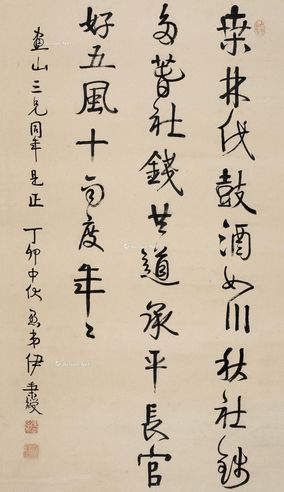 桑林伐鼓酒如川秋社錢
多春社錢共道承平長官
好五風十雨度年〻
畫山三兄同年是正 丁卯中伏愚弟伊秉綬